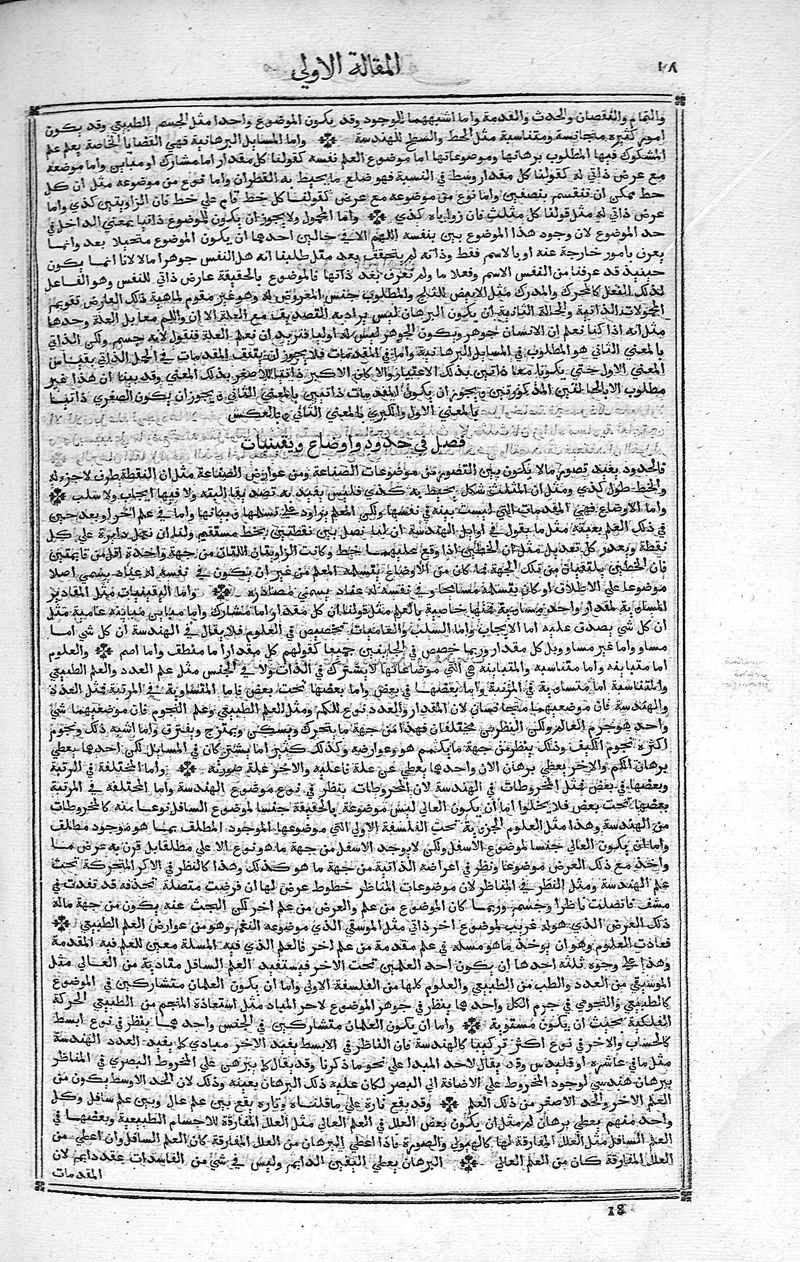 ١٨
المقالة الاولي
والتمام والنقصان والحدث والقدمة واما اشبههما للوجود وقد يكون الموضوع واحدا مثل الجسم الطبيعي وقد يكون
امور كثيرة متجانسة ومتناسبة مثل الخط والسطح للهندسة واما المسايل البرهانية فهي القضايا الخاصة بعلم علم
المشكوك فيها المطلوب برهانها وموضوعاتها اما موضوع العلم نفسه كقولنا كل مقدار اما مشارك او مباين واما موضعه
مع عرض ذاتي له كقولنا كل مقدار وسط في النسبة فهو ضلع ما يحيط به القطران واما نوع من موضوعه مثل ان كل
خط ممكن ان تنقسم بنصفين واما نوع من موضوعه مع عرض كقولنا كل خط قام علي خط فان الزاويتين كذي واما
عرض ذاتي له مثل قولنا كل مثلث فان زواياه كذي واما المحمول ولا يجوز ان يكون للموضوع ذاتيا بمعني الداخل في
حد الموضوع لان وجود هذا الموضوع بين بنفسه اللهم الا في حالين احدها ان يكون الموضوع متخيلا بعد وانما
يعرف بامور خارجة عنه او بالاسم فقط وذاته لم يتحقق بعد مثل طلبنا انه هل النفس جوهر ام لا لانا انما يكون
حينيذ قد عرفنا من النفس الاسم وفعلا ما ولم تعرف بعد ذاتها فالموضوع بالحقيقة عارض ذاتي للنفس وهو الفاعل
لذلك الفعل كالمحرك والمدرك مثل الابيض للثلج والمطلوب جنس المعروض له وهو غير مقوم لماهية ذلك العارض تقويم
المحمولات الذاتية والحالة الثانية ان يكون البرهان ليس يراد به التصديق مع العلة الا ان واللم معا بل العلة وحدها
مثل انه اذا كنا نعلم ان الانسان جوهر ويكون الجوهر ليس له اوليا فنريد ان نعلم العلة فنقول لانه جسم ولكي الذاتي
بالمعني الثاني هو المطلوب في المسايل البرهانية واما في المقدمات فلا يجوز ان يتفق المقدمات في الحمل الذاتي بقياس
المعني الاول حتي يكونا معا ذاتين بذلك الاعتبار والا كان الاكبر ذاتيا للاصغر بذلك المعني وقد بينا ان هذا غير
مطلوب الا بالحالتين المذكورتين ويجوز ان يكون المقدمات ذاتيين بالمعني الثاني ويجوز ان يكون الصغري ذاتيا
بالمعني الاول والكبري بالمعني الثاني وبالعكس
فصل في حدود واوضاع ويقينيات
فالحدود يفيد تصور ما لا يكون بين التصور من موضوعات الصناعة ومن عوارض الصناعة مثل ان النقطة طرف لا جزء له
والخط طول كذي ومثل ان المثلث شكل يحيط به كذي فليس يفيد به تصديقا البته ولا فيها ايجاب ولا سلب
واما الاوضاع فهي المقدمات التي ليست بينه في نفسها ولكي المعلم يراود علي تسلمها وبيانها واما في علم اخر او بعد حين
في ذلك العلم بعينه مثل ما يقول في اوايل الهندسة ان لنا نصل بين نقطتين بخط مستقيم ولنا ان نعمل دايرة علي كل
نقطة وبعدد كل تعديل مثل ان الخطين اذا وقع عليهما خط وكانت الزاويتان اللتان من جهة واحدة اقل من قايمتين
فان الخطين يلتقيان من تلك الجهة فما كان من الاوضاع يتسلمه المعلم من غير ان يكون في نفسه له عناد يسمي اصلا
موضوعا علي الاطلاق او كان يتسلمه مسامحا وفي نفسه له عناد يسمي مصادره واما اليقينيات مثل المقادير
المساوية لمقدار واحد متساوية فمنها خاصية بالعلم مثل قولنا ان كل مقدار اما مشارك واما مباين ومنها عامية مثل
ان كل شي يصدق عليه اما الايجاب واما السلب والعاميات تخصيص في العلوم فلا يقال في الهندسة ان كل شي اما
مساو واما غير مساو وبل كل مقدار وربما خصص في الجانبين جميعا كقولهم كل مقدار اما منطق واما اصم والعلوم
اما متباينه واما متناسبه والمتباينة هي التي موضوعاتها لا يشترك في الذات ولا في الجنس مثل علم العدد والعلم الطبيعي
والمتناسبة اما متساوية في المرتبة واما بعضها في بعض واما بعضها تحت بعض فاما المتساوية في المرتبة فمثل العدد
والهندسة فان موضوعيهما متجانسان لان المقدار والعدد نوع للكم ومثل العلم الطبيعي وعلم النجوم فان موضوعيهما شي
واحد هو جرم العالم ولكي النظرين مختلفان فهذا من جهة ما يتحرك ويسكن ويمتزج ويفترق واما اشبه ذلك ويحوم
اكثره نحوم الكيف وذلك ينظر من جهة ما يكمم هو وعوارضه وكذلك كثيرا ما يشتركان في المسايل لكي احدها يعطي
برهان اللم والاخر يعطي برهان الان واحدها يعطي عن علة فاعليه والاخر علة صورية واما المختلفة في المرتبة
وبعضها في بعض فمثل المخروطات في الهندسة لان المخروطات ينظر في نوع موضوع الهندسة واما المختلفة في المرتبة
بعضها تحت بعض فلا يخلوا اما ان يكون العالي ليس موضوعة بالحقيقة جنسا لموضوع السافل نوعا منه كالمخروطات
من الهندسة وهذا مثل العلوم الجزوية تحت الفلسفة الاولي التي موضوعها الموجود المطلق بما هو موجود مطلق
واما ان يكون العالي جنسا لموضوع الاسفل ولكن لا يوخذ الاسفل من جهة ما هو نوع الاعلي مطلقا بل قرن به عرض ما
واخذ مع ذلك العرض موضوعا ونظر في اعراضه الذاتية من جهة ما هو كذلك وهذا كالنظر في الاكر المتحركة تحت
علم الهندسة ومثل النظر في المناظر لان موضوعات المناظر خطوط عرض لها ان فرضت متصلة بحدقه قد نفذت في
مشف فاتصلت ناظرا وجسم وربما كان الموضوع من علم والعرض من علم اخر لكي البحث عنه يكون من جهة ماله
ذلك العرض الذي هو له غريب لموضوع اخر ذاتي مثل الموسقي الذي موضوعه النغم وهو من عوارض العلم الطبيعي
فعادت العلوم وهو ان يوخذ ما هو مسله في علم مقدمة من علم اخر فالعلم الذي فيه المسلة معين للعلم فيه المقدمة
وهذا علي وجوه ثلثة احدها ان يكون احد العلمين تحت الاخر فيستفيد العلم السافل مقادية من العالي مثل
الموسيقي من العدد والطب من الطبيعي والعلوم كلها من الفلسفة الاولي واما ان يكون العلمان متشاركين في الموضوع
كالطبيعي والنجومي في جرم الكل واحدها ينظر في جوهر الموضوع لاخر المباد مثل استعاذة المنجم من الطبيعي الحركة
الفلكية يجب ان يكون مستوية واما ان يكون العلمان متشاركين في الجنس واحدها ينظر في نوع ابسط
كالحساب والاخر في نوع اكثر تركيبا كالهندسة فان الناظر في الابسط يفيد الاخر مبادي كما يفيد العدد الهندسة
مثل ما في عاشره اوقليدس وقد يقال لاحد المبدا علي نحو ما ذكرنا وقد يقال كما يبرهن علي المخروط البصري في المناظر
ببرهان هندسي لوجود المخروط علي الاضافة الي البصر لكان عليه ذلك البرهان بعينه وذلك لان الحد الاوسط يكون من
العلم الاخر والحد الاصغر من ذلك العلم وقد يقع تارة علي ما قلناه وتاره يقع بين علم عال وبين علم سافل وكل
واحد منهم يعطي برهان لم مثل ان يكون بعض العلل في العلم العالي مثل العلل المفارقة للاجسام الطبيعية وبعضها في
العلم السافل مثل العلل المفارقة لها كالهيولي والصورة فاذا اعطي البرهان من العلل المفارقة كان العلم السافل وان اعطي من
العلل المفارقة كان من العلم العالي البرهان يعطي اليقين الدايم وليس في شي من الفاسدات عقد دايم لان
المقدمات
18